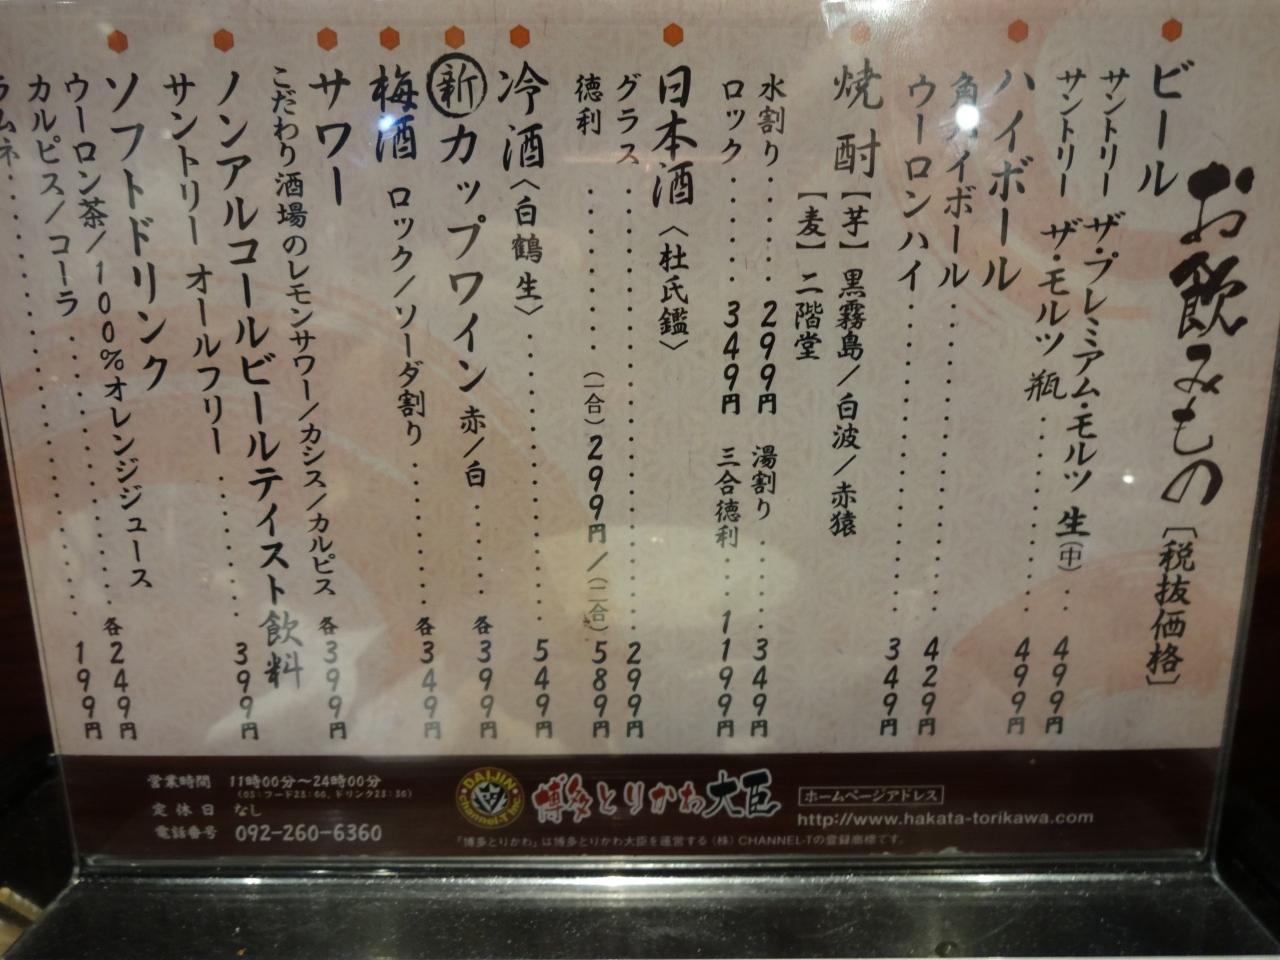 お飲みもの [税抜価格]
ビール
サントリー ザ・プレミアム・モルツ 生(中) 499円
サントリー ザ・モルツ 瓶 499円
ハイボール
角ハイボール 429円
ウーロンハイ 349円
焼酎 [芋] 黒霧島/白波/赤猿
[麦] 二階堂
水割り 299円 湯割り 349円
ロック 349円 三合徳利 1199円
日本酒 〈杜氏鑑〉
グラス 299円
徳利 (一合) 299円/(二合) 589円
冷酒 〈白鶴 生〉 549円
新 カップワイン 赤/白 各399円
梅酒 ロック/ソーダ割り 各349円
サワー
こだわり酒場のレモンサワー/カシス/カルピス 各399円
ノンアルコールビールテイスト飲料
サントリー オールフリー 399円
ソフトドリンク
ウーロン茶/100%オレンジジュース
カルピス/コーラ 各249円
ラムネ 199円
営業時間 11時00分〜24時00分
(OS:フード23:00、ドリンク23:30)
定休日 なし
電話番号 092-260-6360
DAIJIN
channel-T inc.
博多とりかわ大臣
ホームページアドレス
http://www.hakata-torikawa.com
「博多とりかわ」は博多とりかわ大臣を運営する(株)CHANNEL-Tの登録商標です。